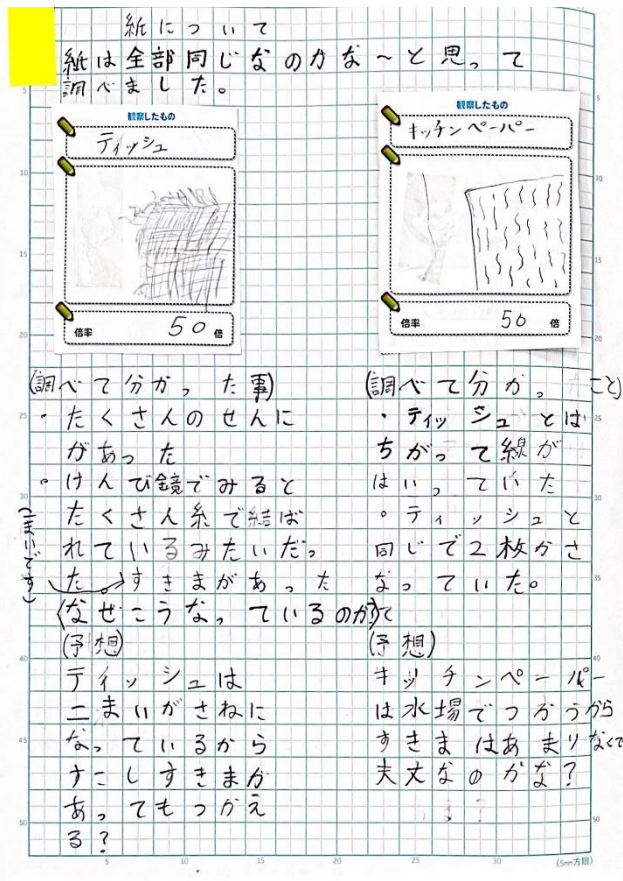 紙について
紙は全部同じなのかな～と思って
調べました。
観察したもの
ティッシュ
倍率 50 倍
観察したもの
キッチンペーパー
倍率 50 倍
(調べて分かった事)
・たくさんのせんに
があった
・けんび鏡でみると
たくさん糸で結ば
れているみたいだっ
た。すきまがあった
(1まいです)
(なぜこうなっているのか)
(予想)
ティッシュは
二まいがさねに
なっているから
すこしすきまが
あってもつかえ
る?
(調べて分かったこと)
・ティッシュとは
ちがって線が
はいっていた
・ティッシュと
同じで2枚かさ
なっていた。
(予想)
キッチンペーパー
は水場でつかうから
すきまはあまりなくて
大丈なのかな?
5 10 15 20 25 30
(5mm方眼)